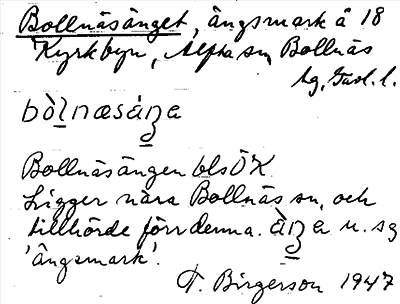 Bollnäsänget, ängsmark å 18
Kyrkbyn, Alfta sn, Bollnäs
hg, Gävl. l.
bòlnæsáŋa
Bollnäsängen bls ÖK
Ligger nära Bollnäs sn, och
tillhörde förr denna. àŋa n. sg
'ängsmark'.
T. Birgerson 1947